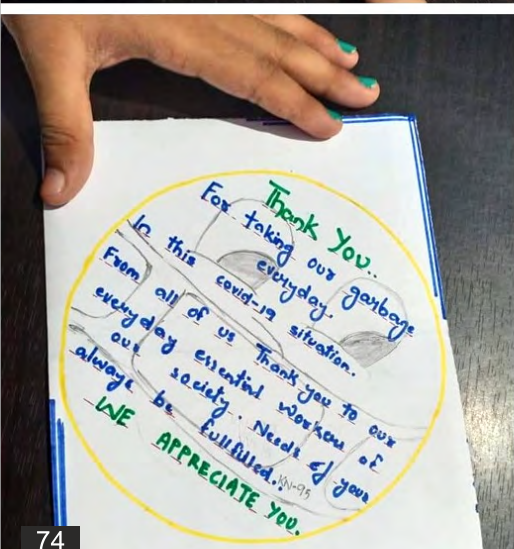 Thank You..
For taking our garbage
everyday.
In this covid-19 situation.
From all of us Thank you to our
everyday essential workers of
our society. Needs of your
always be fullfilled..
KN-95
WE APPRECIATE YOU.
74